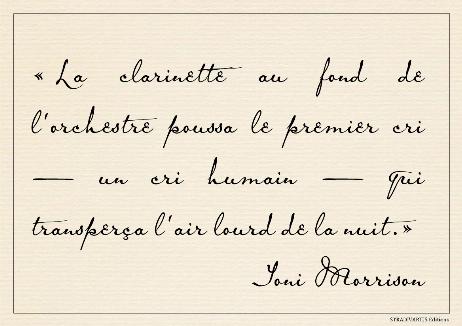 « La clarinette au fond de
l'orchestre poussa le premier cri
— un cri humain — qui
transperça l'air lourd de la nuit.»
Toni Morrison
STRADIVARIUS Editions